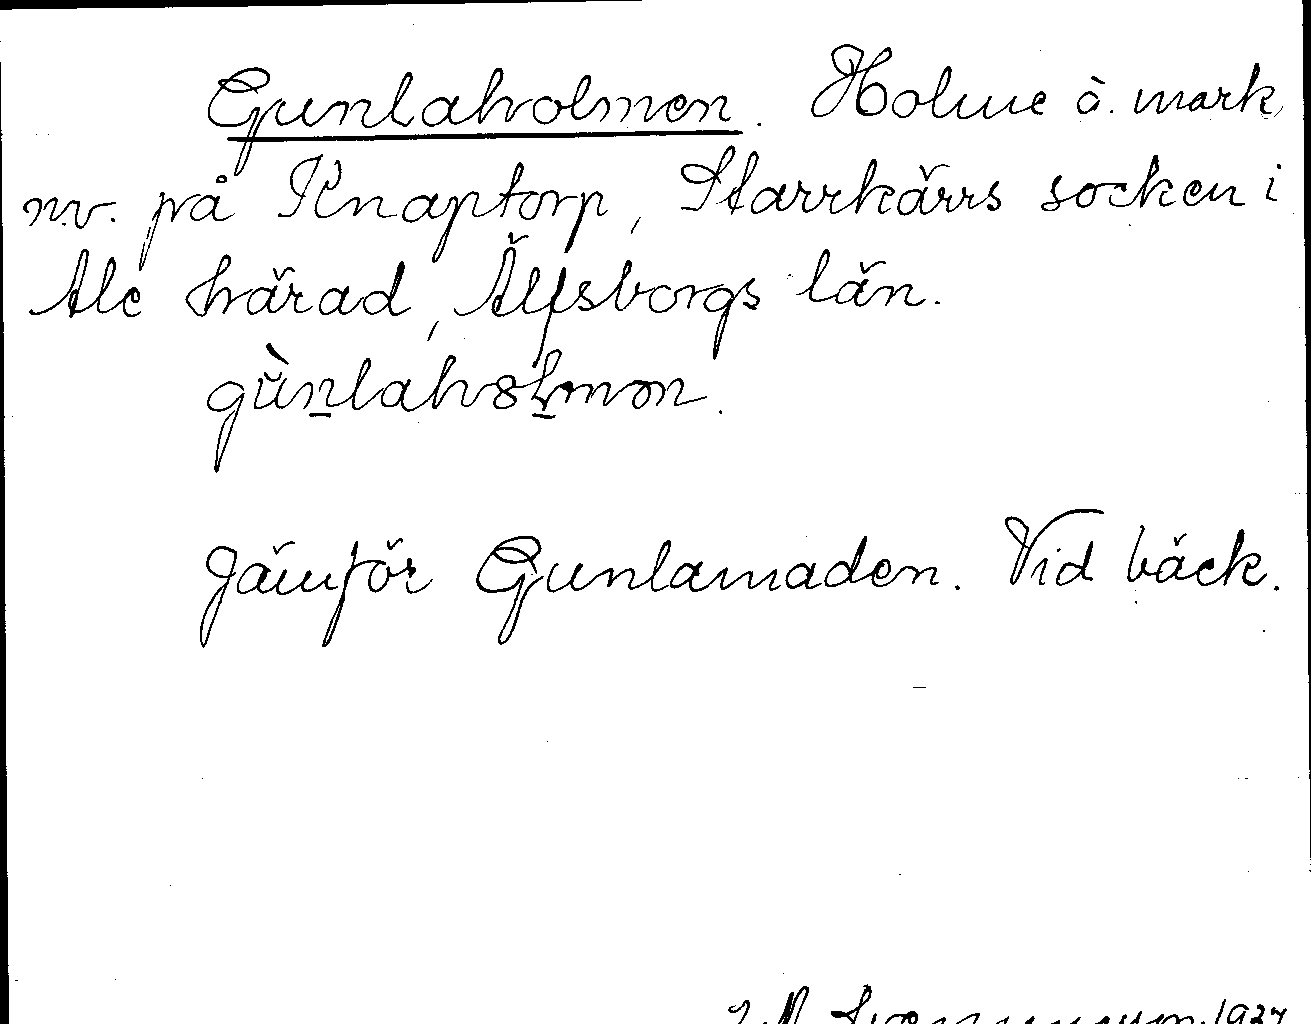 Gunlaholmen. Holme å mark
nv. på Knaptorp, Starrkärrs socken i
Ale härad, Älfsborgs län.
Jämför Gunlamaden. Vid bäck.
1927